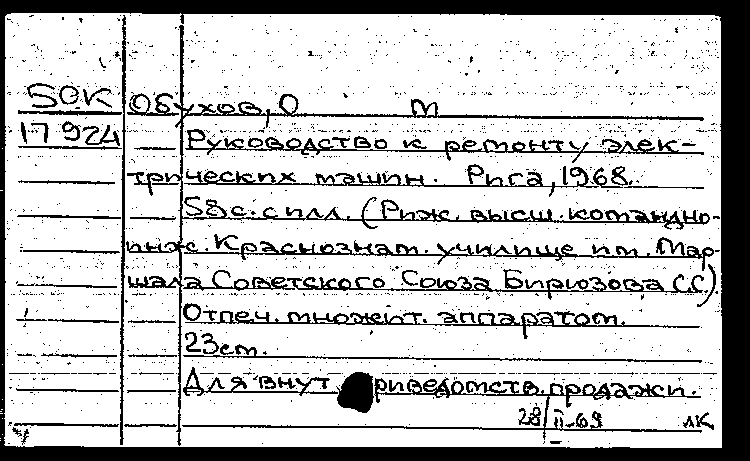 50К Обухов, О М
17924 Руководство к ремонту элек-
трических машин. Рига, 1968.
58с. с илл. (Риж. высш. командно-
инж. Краснознам. училище им. Мар-
шала Советского Союза Бирюзова С.С.)
Отпеч. множит. аппаратом.
23см.
Для внут риведомств. продажи.
28/II-69 лк